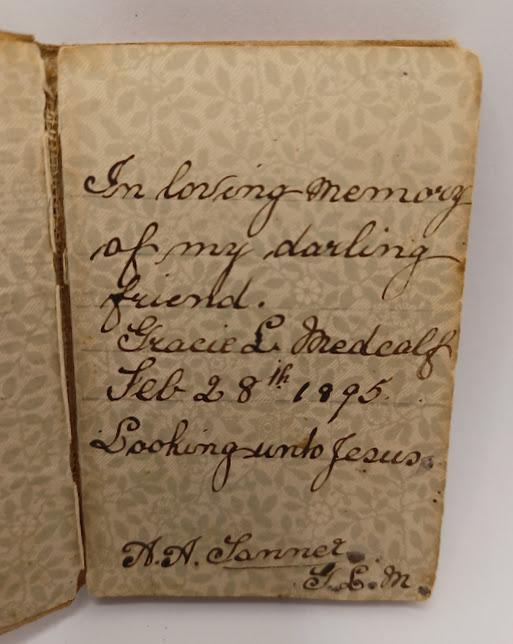 In loving memory
of my darling
friend.
Gracie L Medcalf
Feb 28th 1895.
Looking unto Jesus.
A.A. Tanner
G.L.M